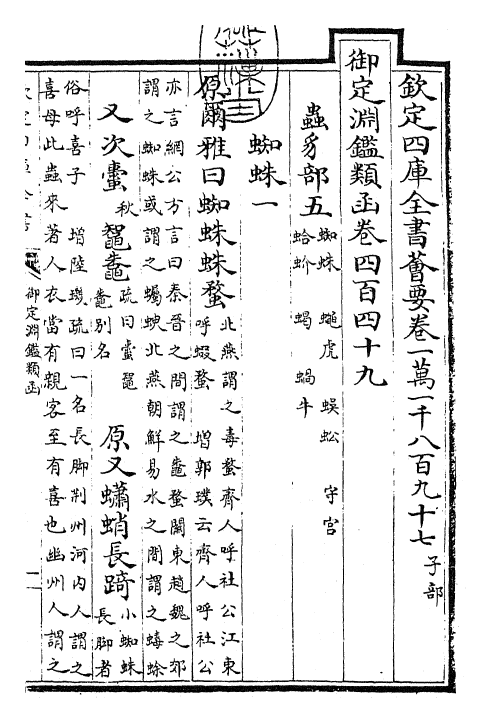 欽定四庫全書薈要卷一萬一千八百九十七 子部
御定淵鑑類函卷四百四十九
蟲豸部五
蜘蛛 蠅虎 蜈蚣 守宮
蛤蚧 蝎 蝸牛
蜘蛛一
原爾雅曰蜘蛛蛛蝥
北燕謂之毒蝥齊人呼社公江東
呼蝃蝥 增郭璞云齊人呼社公
亦言網公方言曰秦晉之間謂之鼄蝥關東趙魏之郊
謂之蜘蛛或謂之蠾蝓北燕朝鮮易水之間謂之蝳蜍
又次蟗 秋 鼅鼄
疏曰蟗鼅
鼄別名
原又蠨蛸長踦
小蜘蛛
長脚者
俗呼喜子 增陸璣疏曰一名長脚荆州河内人謂之
喜母此蟲來著人衣當有親客至有喜也幽州人謂之
御定淵鑑類函